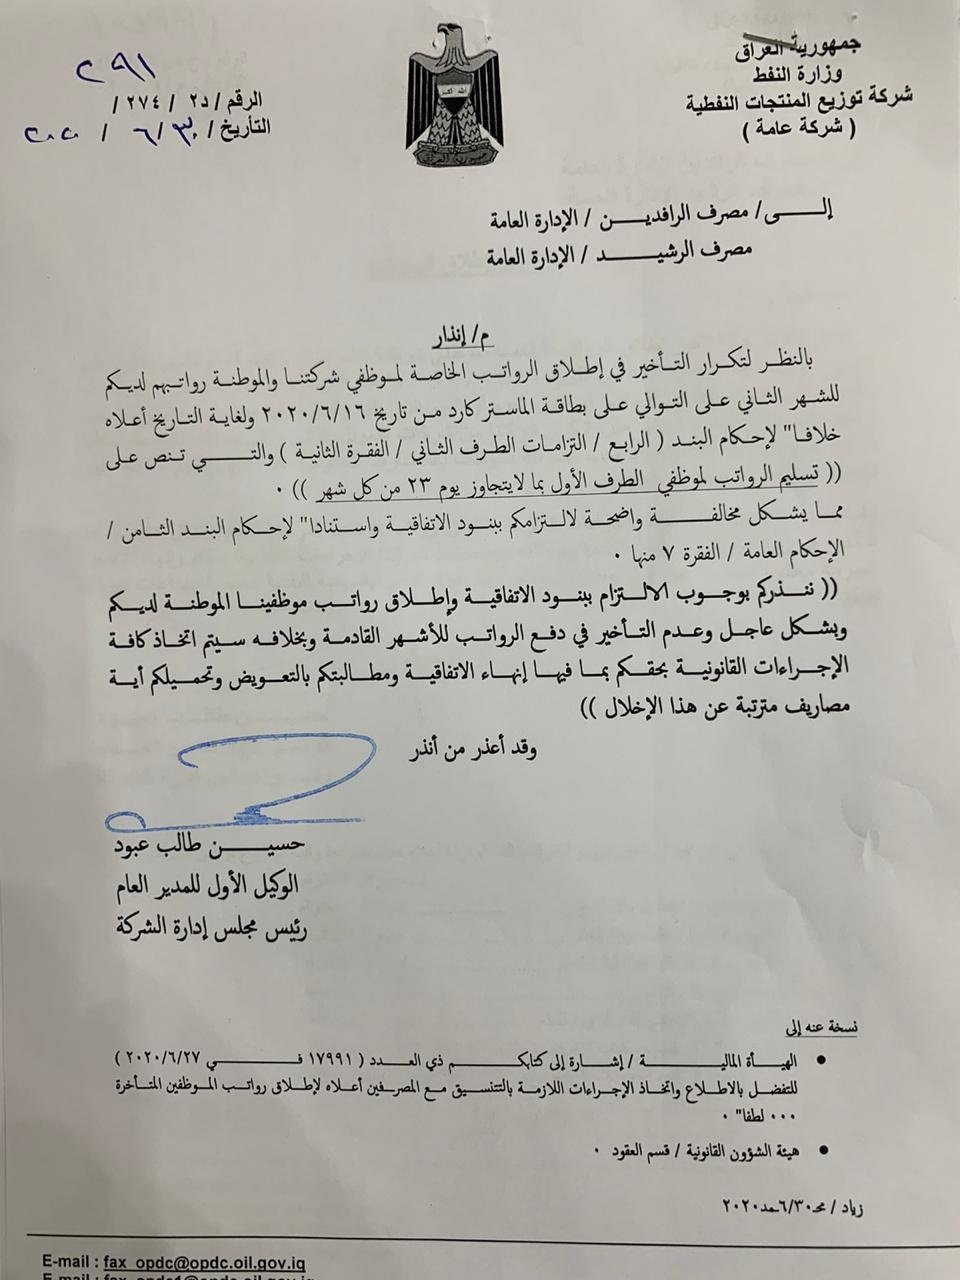 جمهورية العراق
وزارة النفط
شركة توزيع المنتجات النفطية
( شركة عامة )
٢٩١
الرقم / د٢ / ٢٧٤ /
التأريخ / ٣٠ / ٦ / ٢٠٢٠
جمهورية العراق
إلـــى/ مصرف الرافديـــن / الإدارة العامة
مصرف الرشيـــد / الإدارة العامة
م/ إنذار
بالنظر لتكرار التـأخير في إطـلاق الرواتـب الخاصة لموظفي شركتنـا والموطنـة رواتـبهم لديكـم
للشهر الثـاني على التـوالي على بطاقة الماستر كارد من تاريخ ٢٠٢٠/٦/١٦ ولغاية التـاريخ أعـلاه
خلافـا" لإحكام البنـد ( الرابـع / التزامات الطرف الثـاني / الفقـرة الثانيـة ) والتـــي تـنص على
(( تسليم الرواتب لموظفي الطرف الأول بما لايتجاوز يوم ٢٣ من كل شهر )) ٠
ممـا يشـكل مخالفـــة واضحـة لالتـزامكم ببنـود الاتفاقيـة واستنـادا" لإحكـام البنـد الثـامن /
الإحكام العامة / الفقرة ٧ منها ٠
(( ننـذركم بوجـوب الالـتزام ببنـود الاتفاقيـة وإطـلاق رواتـب موظفينـا الموطنـة لديكـم
وبشكل عاجـل وعـدم التـأخير في دفـع الرواتـب للأشـهر القادمـة وبخلافـه سـيتم اتـخاذ كافـة
الإجـراءات القانونيـة بحقكـم بمـا فيهـا إنهـاء الاتفاقيـة ومطـالبتكم بالتعويض وتحميلكم أيـة
مصاريف مترتبة عن هذا الإخلال ))
وقد أعذر من أنذر
حسيـــن طالب عبود
الوكيل الأول للمدير العام
رئيس مجلس إدارة الشركة
نسخة عنه إلى
• الهيـأة الماليـــة / إشـارة إلى كتابكـــم ذي العـدد ( ١٧٩٩١ فـــي ٢٠٢٠/٦/٢٧ )
للتفضل بالاطلاع واتخاذ الإجراءات اللازمة بالتنسيق مع المصرفين أعلاه لإطلاق رواتب الموظفين المتأخرة
٠٠٠ لطفا" ٠
• هيئة الشؤون القانونية / قسم العقود ٠
زياد / محـ٦/٣٠ـمد٢٠٢٠
E-mail : fax_opdc@opdc.oil.gov.iq
E-mail : fax_opdc1@opdc.oil.gov.iq